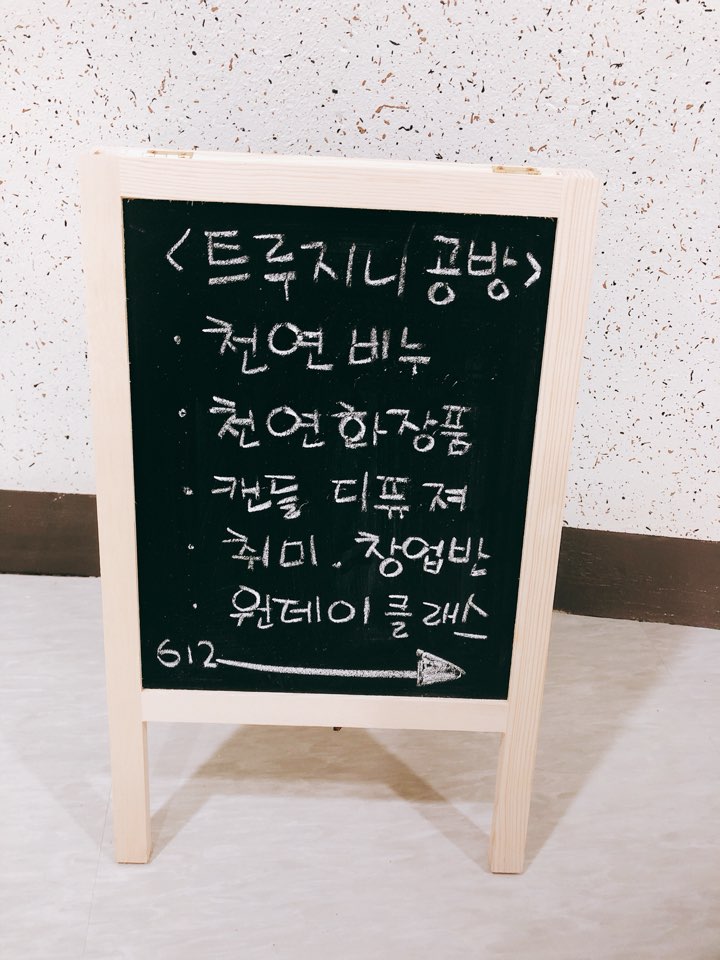 <트루지니 공방>
· 천연 비누
· 천연화장품
· 캔들 디퓨져
· 취미 . 창업반
· 원데이 클래스
612 →